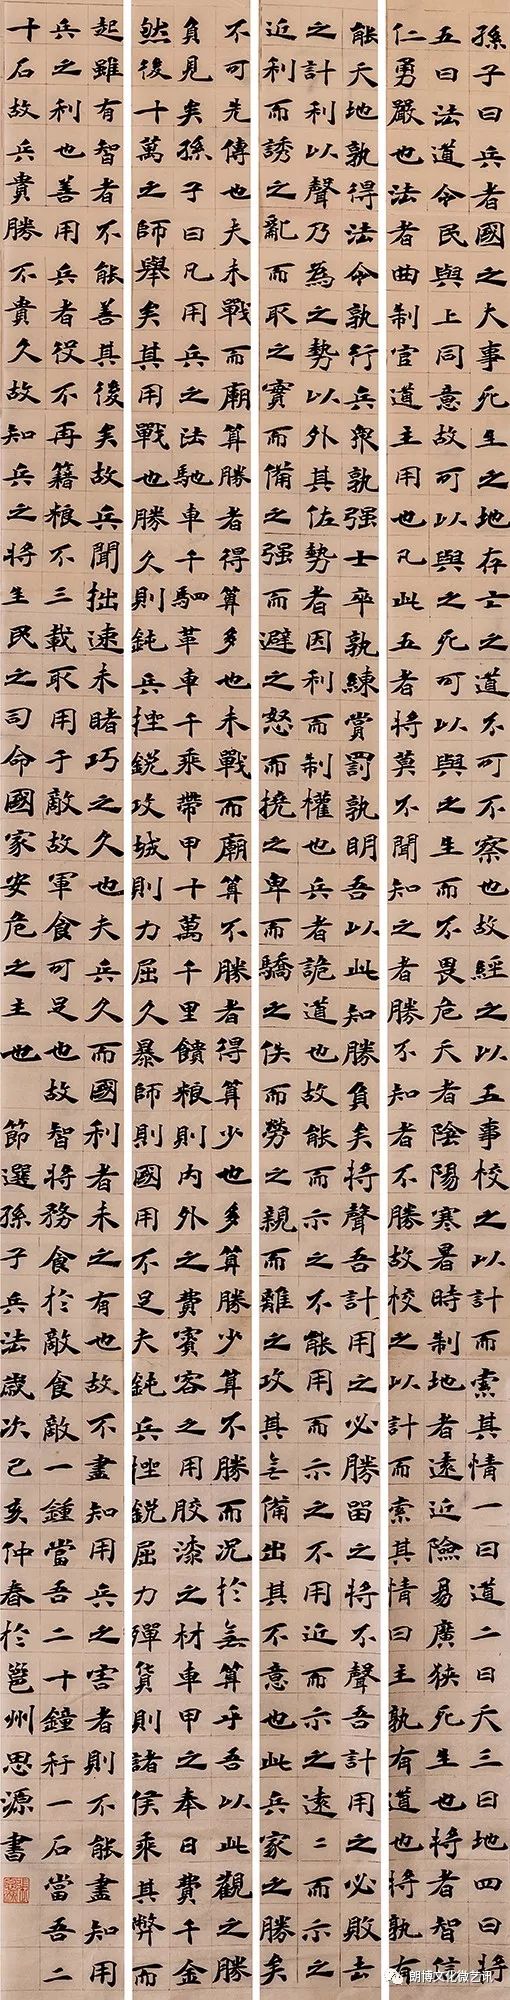 孫子曰兵者國之大事死生之地存亡之道不可不察也故經之以五事校之以計而索其情一曰道二曰天三曰地四曰將
五曰法道令民與上同意故可以與之死可以與之生而不畏危天者陰陽寒暑時制地者遠近險易廣狹死生也將者智信
仁勇嚴也法者曲制官道主用也凡此五者將莫不聞知之者勝不知者不勝故校之以計而索其情曰主孰有道也將孰有
能天地孰得法令孰行兵衆孰强士卒孰練賞罰孰明吾以此知勝負矣將聲吾計用之必勝留之將不聲吾計用之必敗去
之計利以聲乃為之勢以外其佐勢者因利而制權也兵者詭道也故能而示之不能用而示之不用近而示之遠〻而示之
近利而誘之亂而取之實而備之强而避之怒而撓之卑而驕之佚而勞之親而離之攻其无備出其不意也此兵家之勝矣
不可先傳也夫未戰而廟算勝者得算多也未戰而廟算不勝者得算少也多算勝少算不勝而況於无算乎吾以此觀之勝
負見矣孫子曰凡用兵之法馳車千駟革車千乘帶甲十萬千里饋粮則內外之費賓客之用膠漆之材車甲之奉日費千金
然後十萬之師舉矣其用戰也勝久則鈍兵挫銳攻城則力屈久暴師則國用不足夫鈍兵挫銳屈力殫貨則諸侯乘其弊而
起雖有智者不能善其後矣故兵聞拙速未睹巧之久也夫兵久而國利者未之有也故不盡知用兵之害者則不能盡知用
兵之利也善用兵者役不再籍粮不三載取用于敵故軍食可足也故智將務食於敵食敵一鍾當吾二十鐘秆一石當吾二
十石故兵貴勝不貴久故知兵之將生民之司命國家安危之主也 節選孫子兵法歲次己亥仲春於邕州思源書
朗博文化微艺讯